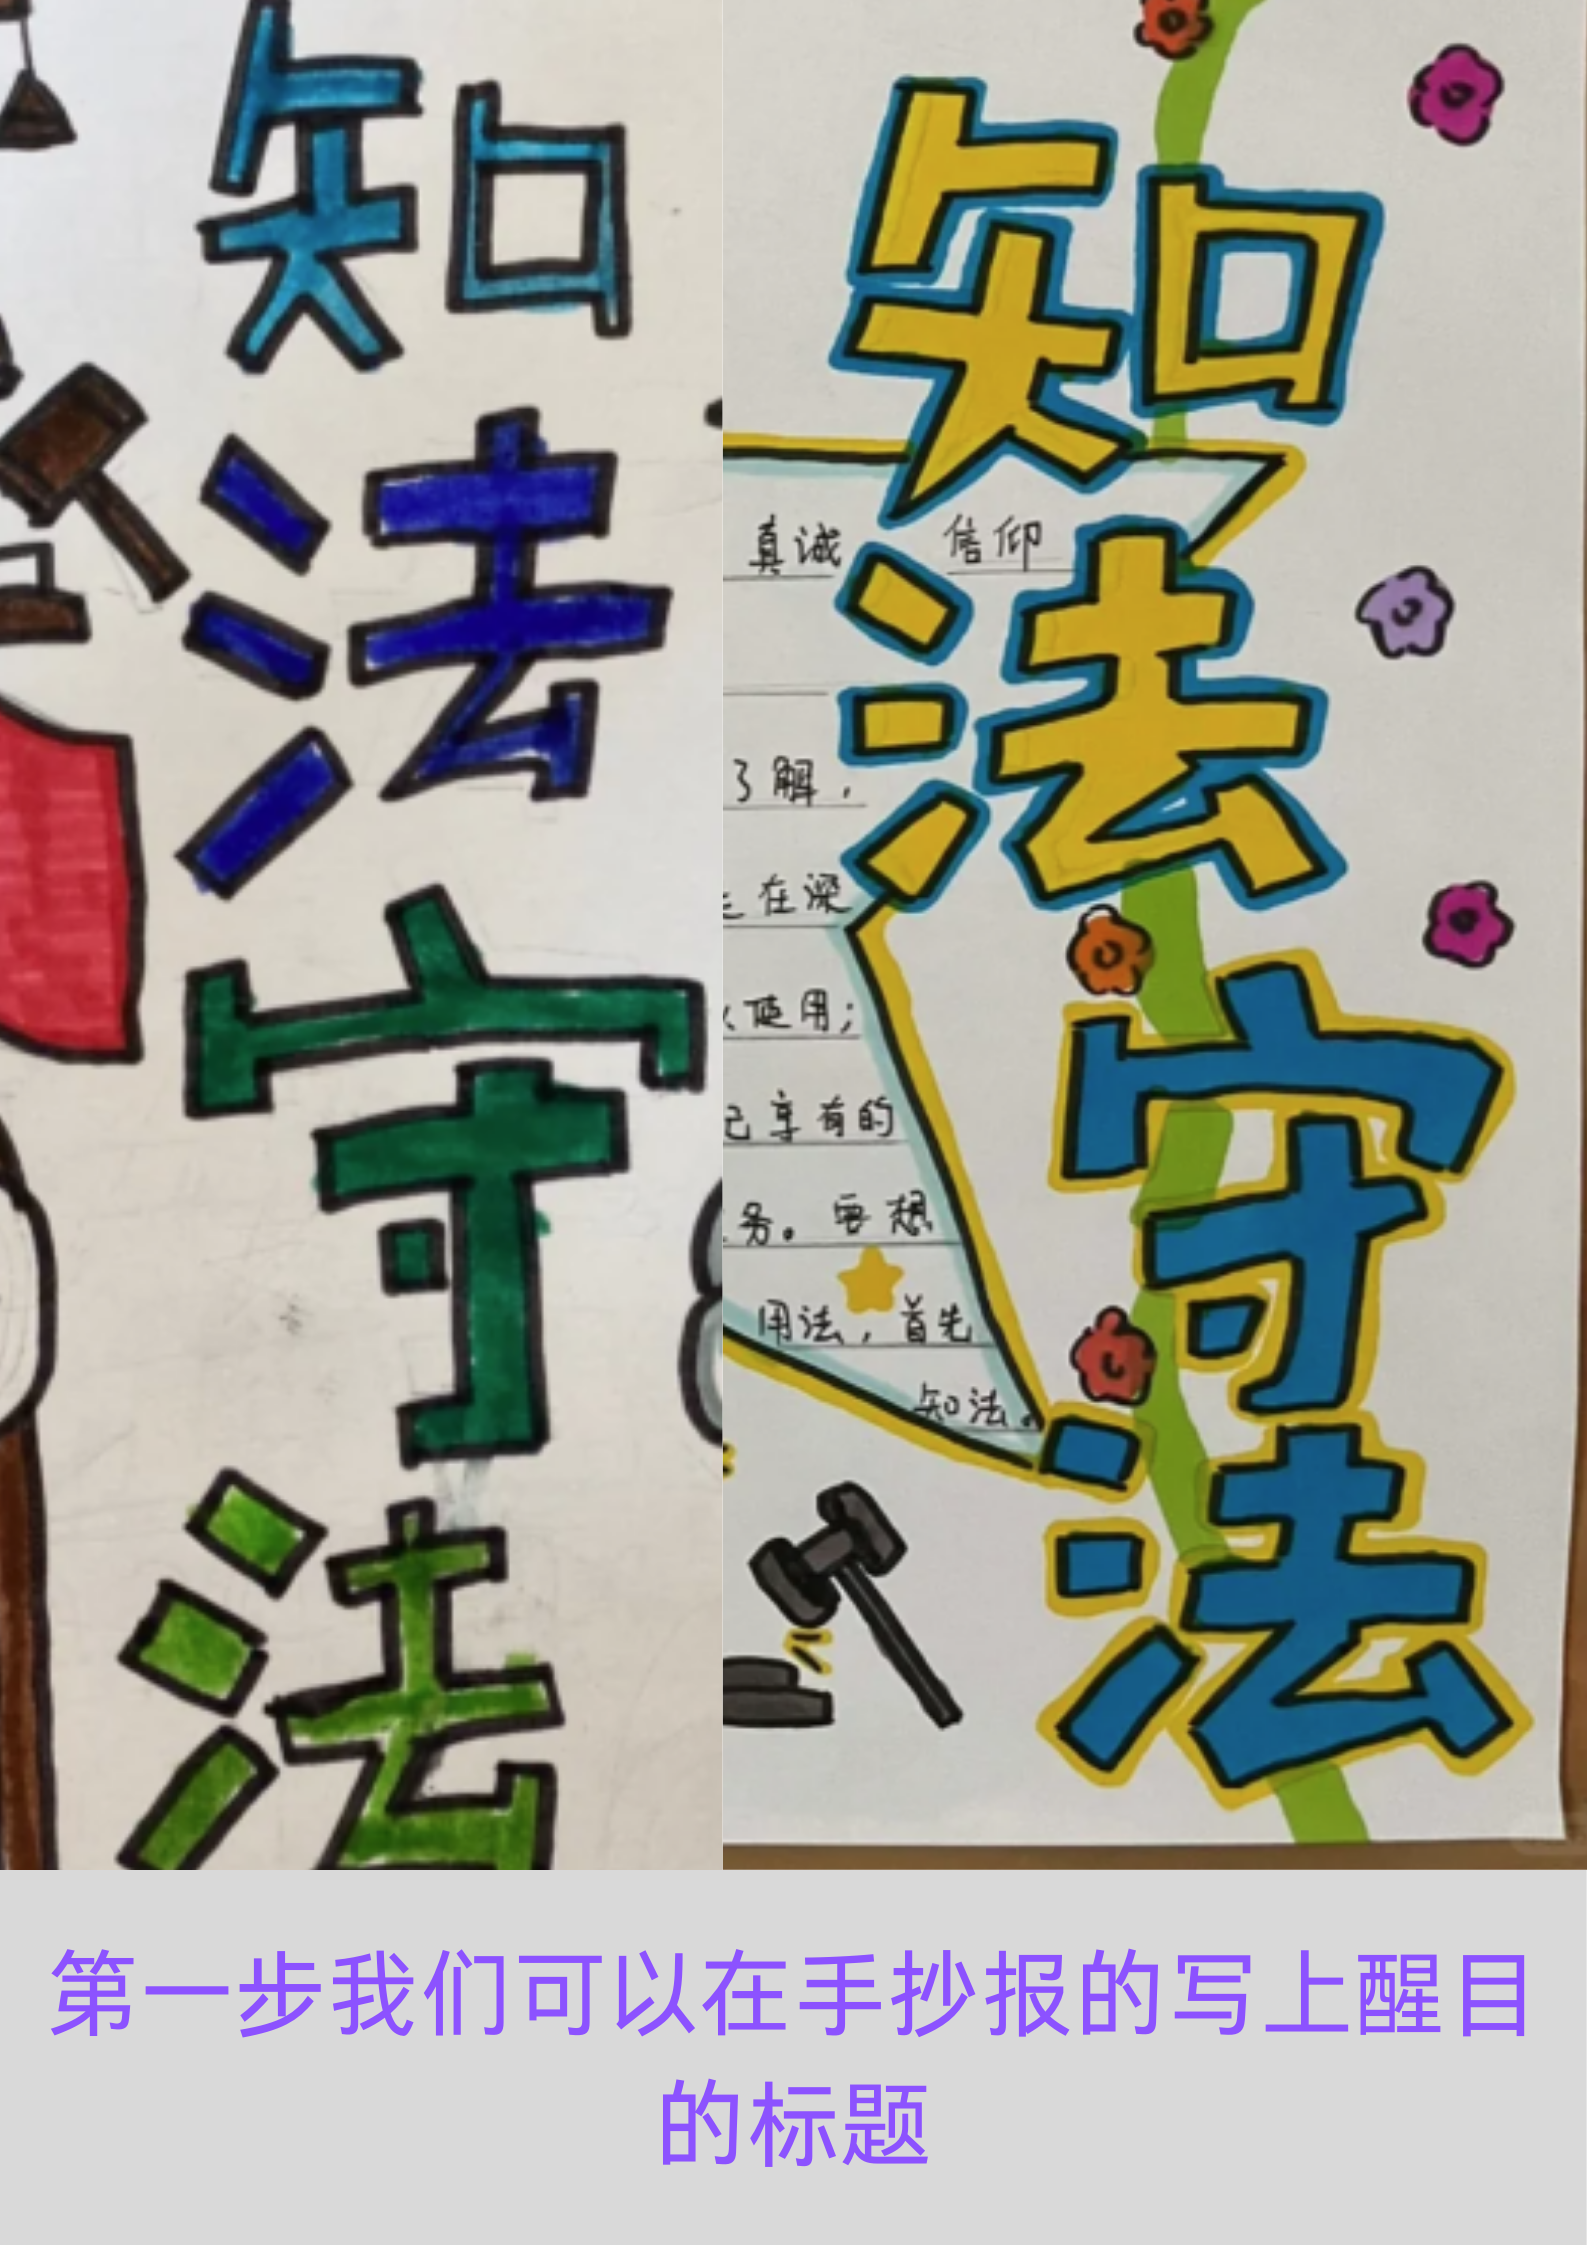 知
法
守
法
知
法
守
法
真诚 信仰
了解，
在深
使用；
己享有的
务。要想
用法，首先
知法。
第一步我们可以在手抄报的写上醒目
的标题